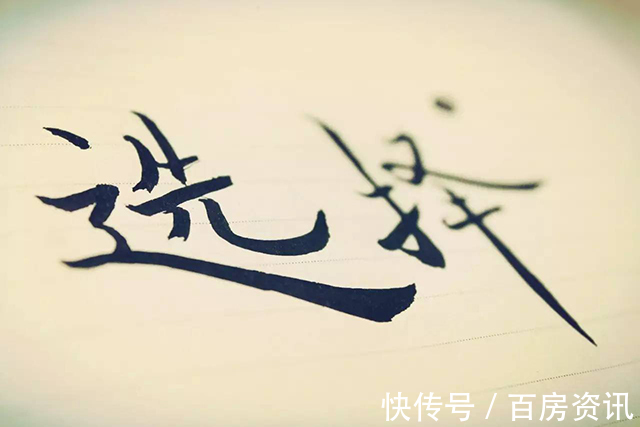 选择
快传号 / 百房资讯